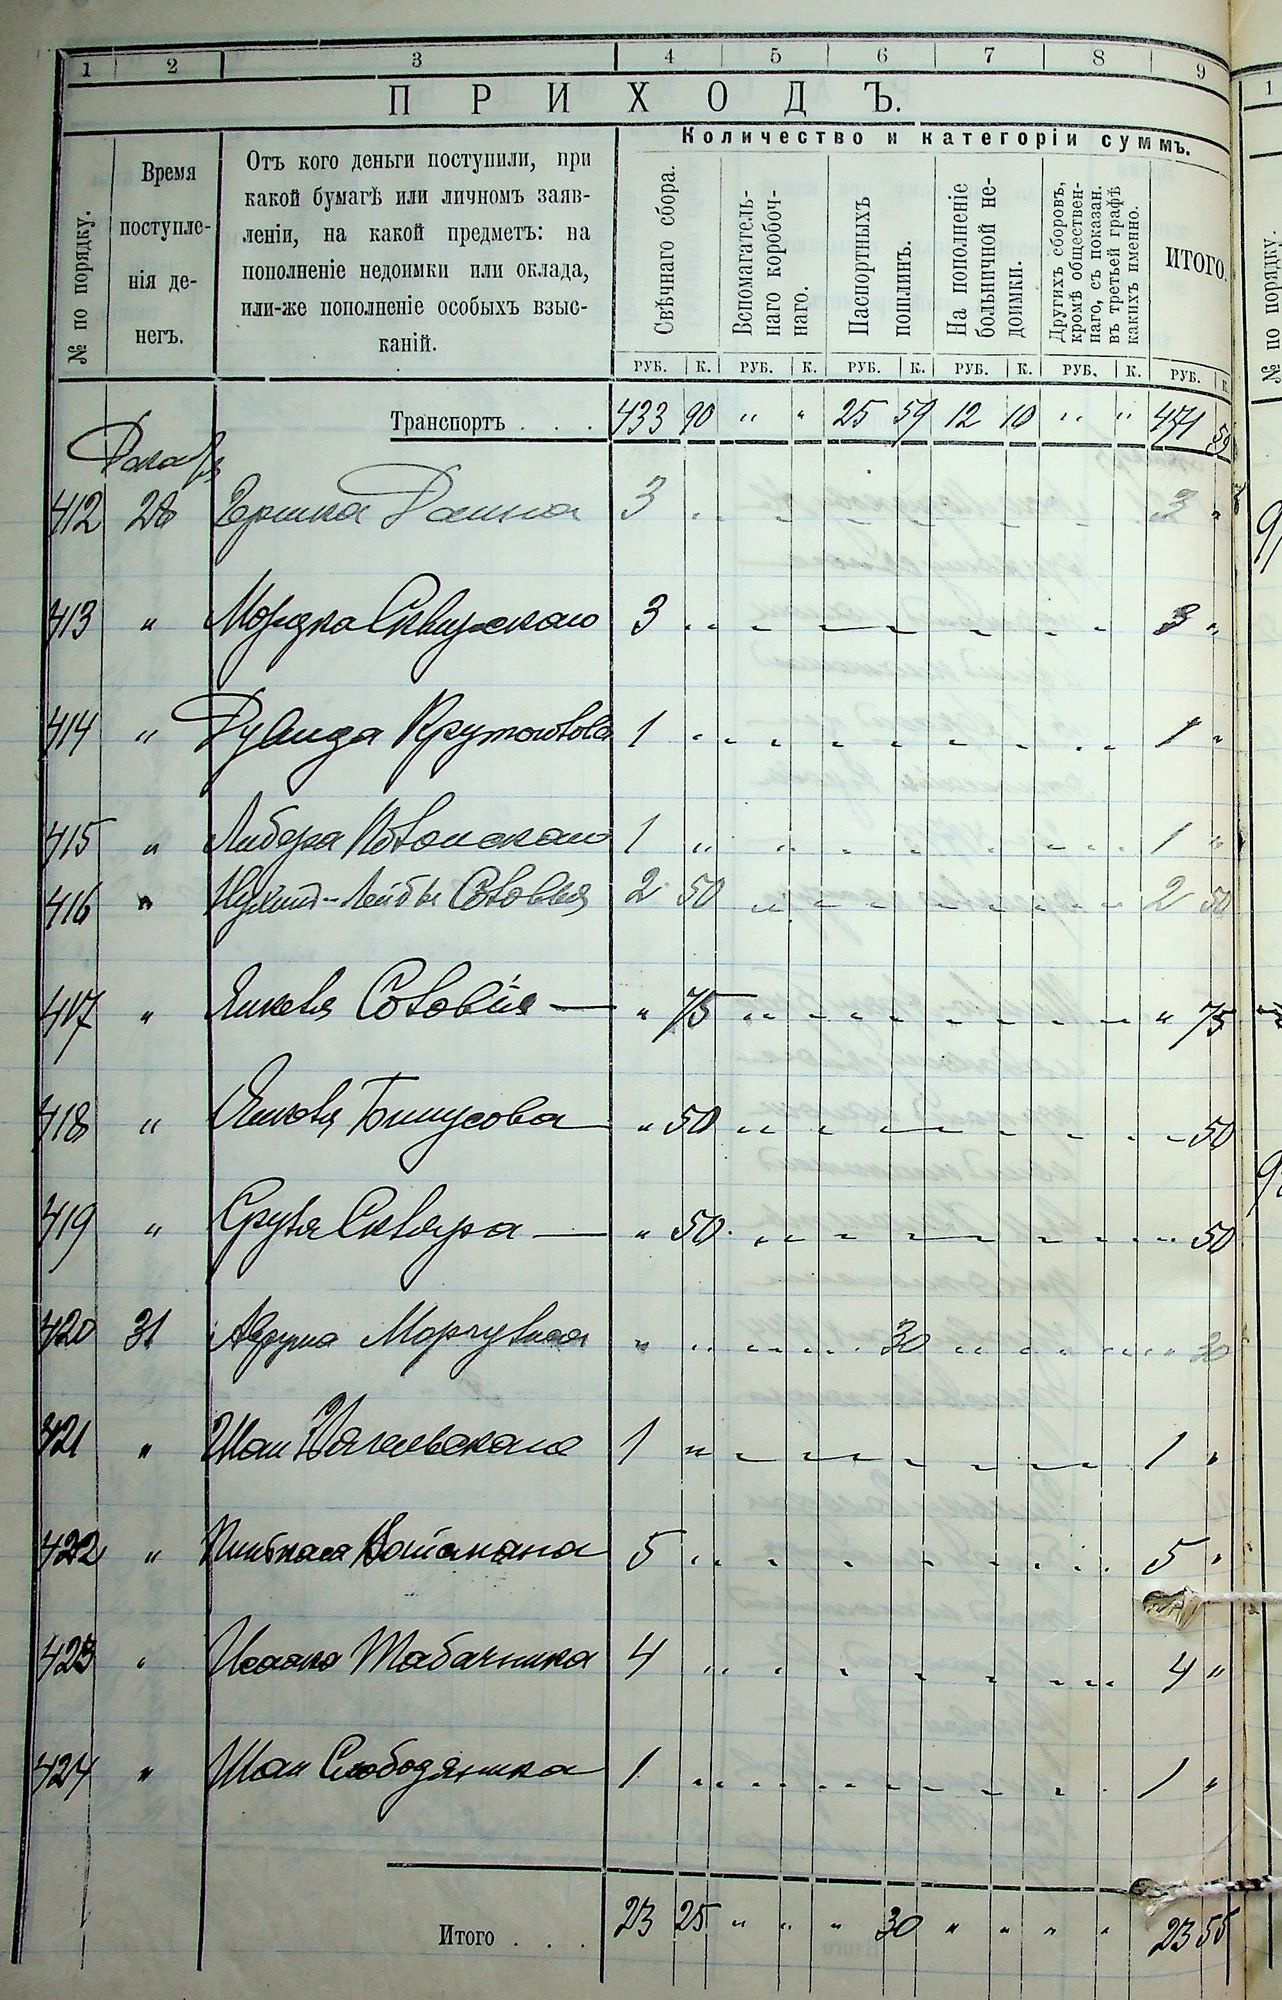 1 2 3 4 5 6 7 8 9
ПРИХОДЪ.
Количество и категоріи суммъ.
№ по порядку.
Время
поступле-
нія де-
негъ.
Отъ кого деньги поступили, при
какой бумагѣ или личномъ заяв-
леніи, на какой предметъ: на
пополненіе недоимки или оклада,
или-же пополненіе особыхъ взыс-
каній.
Свѣчнаго сбора.
Вспомагатель-
наго коробоч-
наго.
Паспортныхъ
пошлинъ.
На пополненіе
больничной не-
доимки.
Другихъ сборовъ,
кромѣ обществен-
наго, съ показан.
въ третьей графѣ
какихъ именно.
ИТОГО.
РУБ. К. РУБ. К. РУБ. К. РУБ. К. РУБ. К. РУБ. К.
Транспортъ . . . 433 90 " " 25 59 12 10 " " 471 59
Декабр
412 28 Гершка 3 " 3 "
413 " Мордка Сквирскаго 3 " 3 "
414 " Дувида 1 " 1 "
415 " Либера 1 " 1 "
416 " Нухим-Лейбы Соловья 2 50 2 50
417 " Якова Соловья — " 75 " 75
418 " Якова — " 50 50
419 " Сруля Сквира — " 50 50
420 31 " 30 30
421 " Шаи 1 " 1 "
422 " Пинкаса 5 " 5 "
423 " Исаака Табачника 4 " 4 "
424 " Шаи Слободяника 1 " 1 "
Итого . . . 23 25 " " " 30 " " " " 23 55
1
№ по порядку.